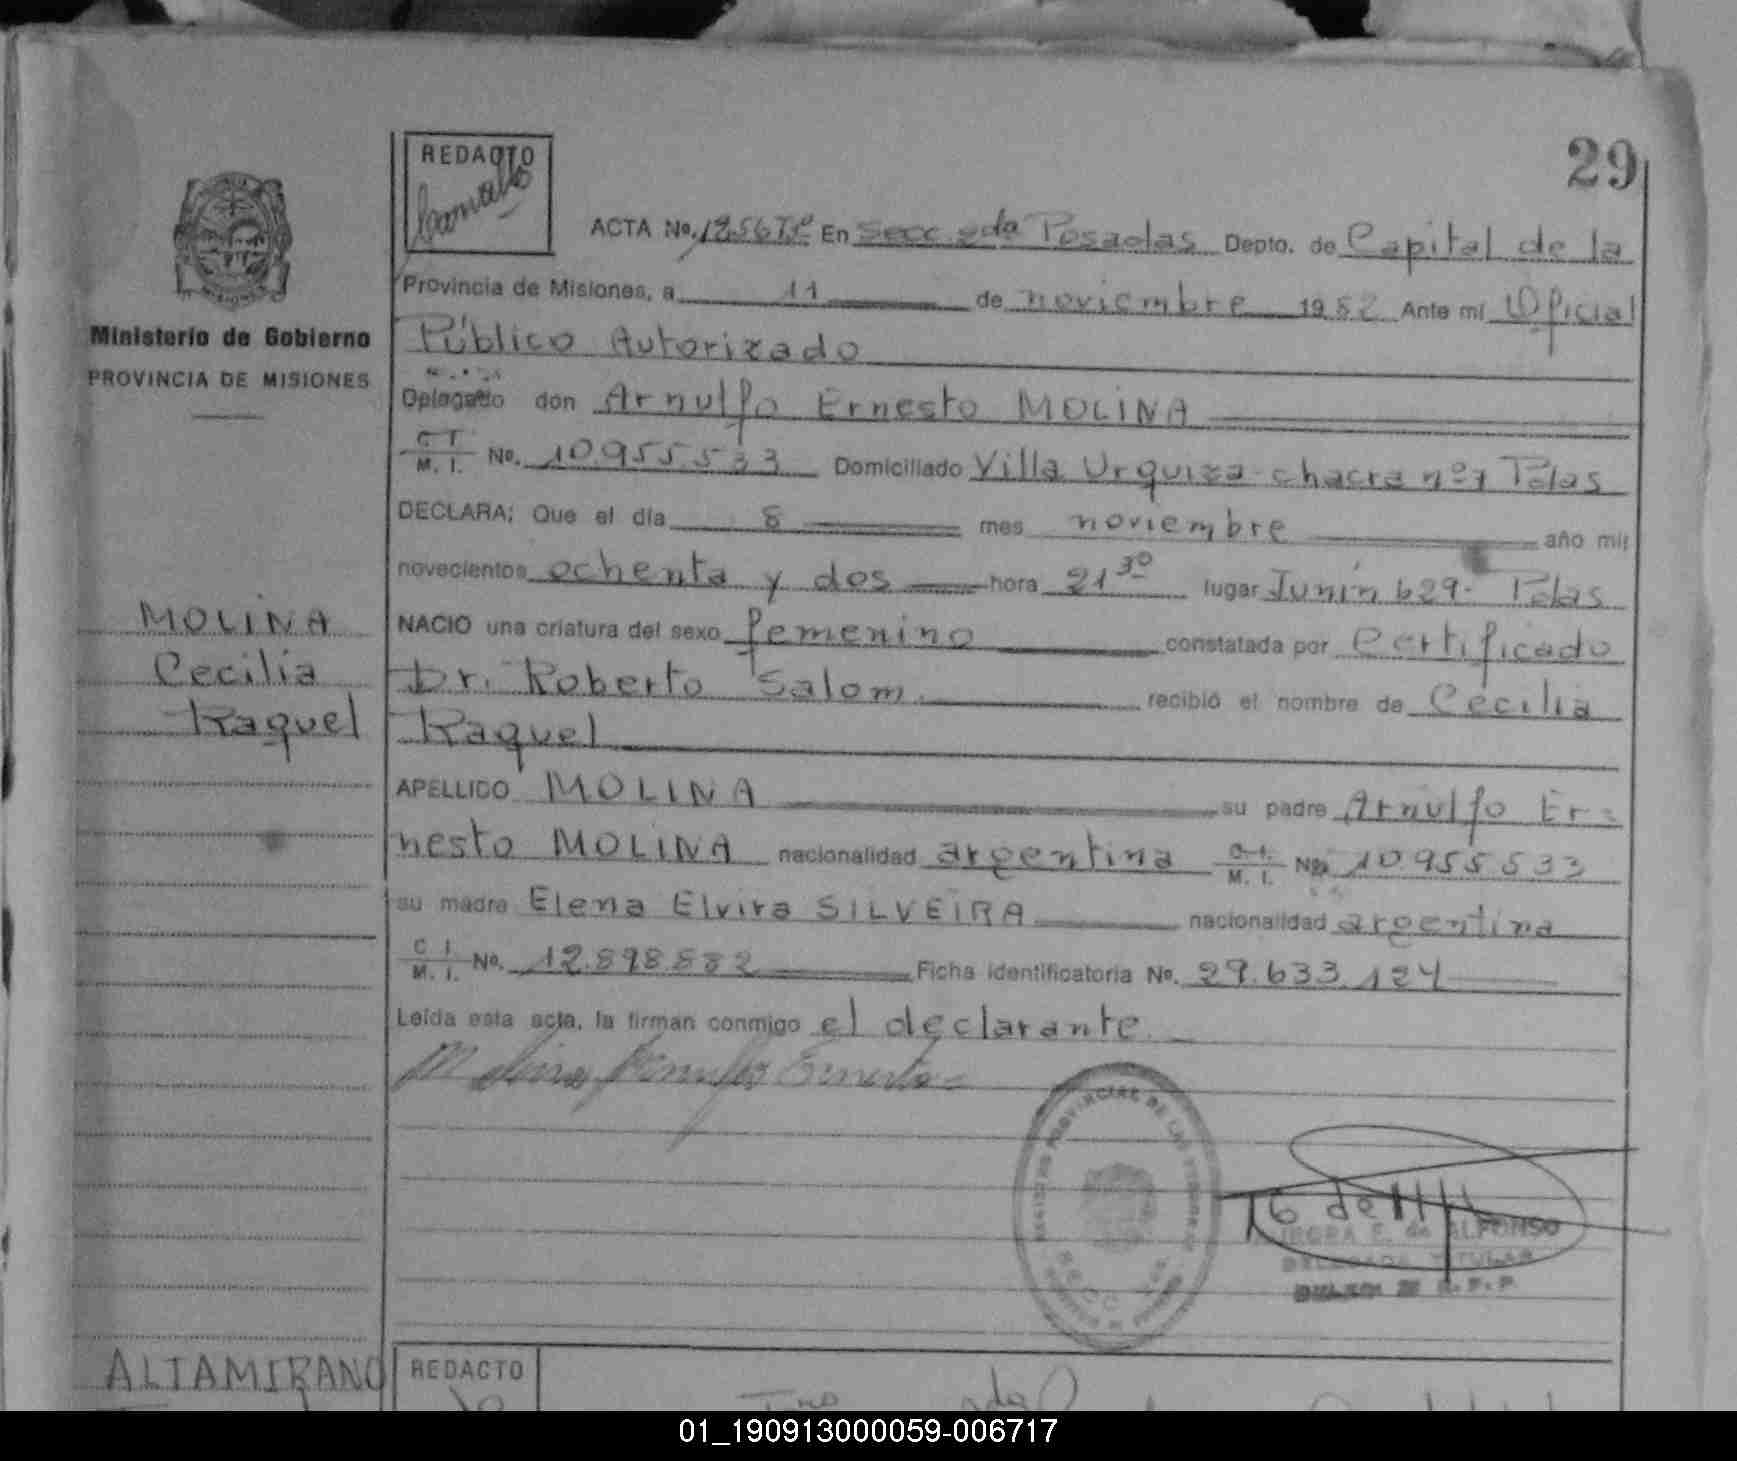 29
REDACTO
ACTA No. En Secc. 2da Posadas Depto. de Capital de la
Provincia de Misiones, a 11 de noviembre 1982 Ante mí Oficial
Ministerio de Gobierno
PROVINCIA DE MISIONES
Público Autorizado
don Arnulfo Ernesto MOLINA
C I
M. I. No. 10.955.533 Domiciliado Villa Urquiza chacra nº 1 Pdas
DECLARA: Que el día 8 mes noviembre año mil
novecientos ochenta y dos hora 21 30 lugar Junín 629- Pdas
NACIO una criatura del sexo femenino constatada por Certificado
Dr. Roberto Salom recibió el nombre de Cecilia
Raquel
MOLINA
Cecilia
Raquel
APELLIDO MOLINA su padre Arnulfo Er-
nesto MOLINA nacionalidad argentina C.I.
M. I. No. 10955533
su madre Elena Elvira SILVEIRA nacionalidad argentina
C I
M. I. No. 12.898.882 Ficha identificatoria No. 29.633.124
Leída esta acta, la firman conmigo el declarante.
Molina Arnulfo Ernesto
E. de ALFONSO
DELEGADA TITULAR
ALTAMIRANO
REDACTO
01_190913000059-006717